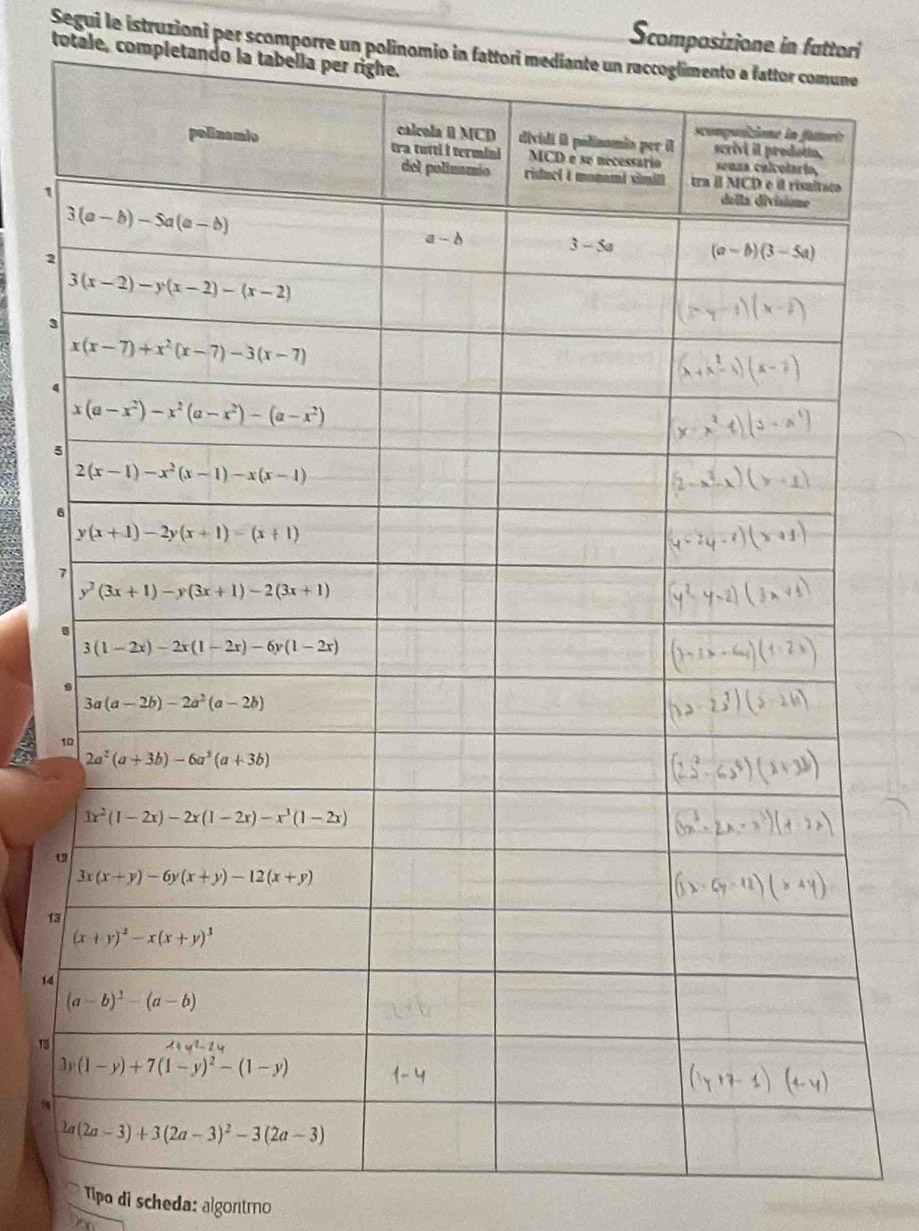 Scomposizione in fattori
Segui le istruzioni per scomporre un polinomio in fattori mediante un raccoglimento a fattor comune
totale, completando la tabella per righe.
polinomio
calcola il MCD
tra tutti i termini
del polinomio
dividi il polinomio per il
MCD e se necessario
riduci i monomi simili
scomposizione in fattori:
scrivi il prodotto,
senza calcolarlo,
tra il MCD e il risultato
della divisione
1 3(a − b) − 5a(a − b) a − b 3 − 5a (a − b)(3 − 5a)
2 3(x − 2) − y(x − 2) − (x − 2)
3 x(x − 7) + x²(x − 7) − 3(x − 7)
4 x(a − x²) − x²(a − x²) − (a − x²)
5 2(x − 1) − x²(x − 1) − x(x − 1) (2 - x² - x)(x - 1)
6 y(x + 1) − 2y(x + 1) − (x + 1) (y - 2y - 1)(x + 1)
7 y²(3x + 1) − y(3x + 1) − 2(3x + 1) (y² - y - 2)(3x + 1)
8 3(1 − 2x) − 2x(1 − 2x) − 6y(1 − 2x) (3 - 2x - 6y)(1 - 2x)
9 3a(a − 2b) − 2a²(a − 2b) (3a - 2a²)(a - 2b)
10 2a²(a + 3b) − 6a³(a + 3b) (a + 3b)
3x²(1 − 2x) − 2x(1 − 2x) − x³(1 − 2x) (3x² - 2x - x³)(1 - 2x)
12 3x(x + y) − 6y(x + y) − 12(x + y) (3x - 6y - 12)(x + y)
13 (x + y)² − x(x + y)³
14 (a − b)² − (a − b)
1 + y² - 2y
15 3y(1 − y) + 7(1 − y)² − (1 − y) 1 - y (3y + 7 - 1) (1 - y)
2a(2a − 3) + 3(2a − 3)² − 3(2a − 3)
Tipo di scheda: algoritmo